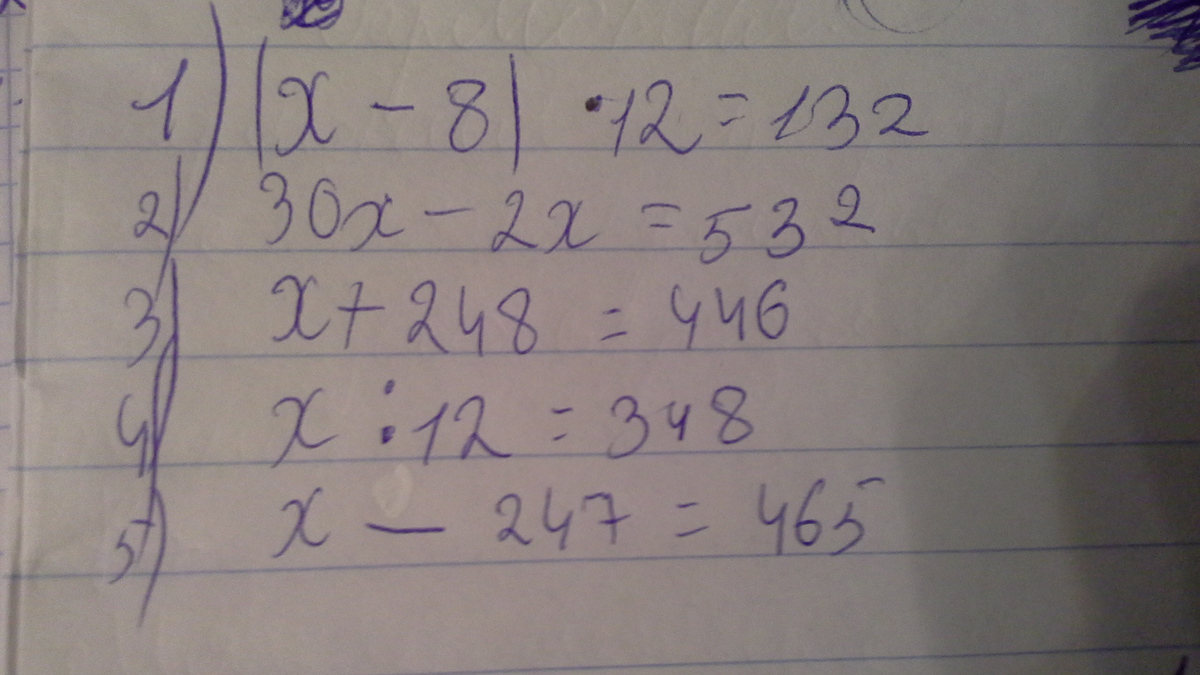 1) |x - 8| · 12 = 132
2) 30x - 2x = 532
3) x + 248 = 446
4) x : 12 = 348
5) x - 247 = 465